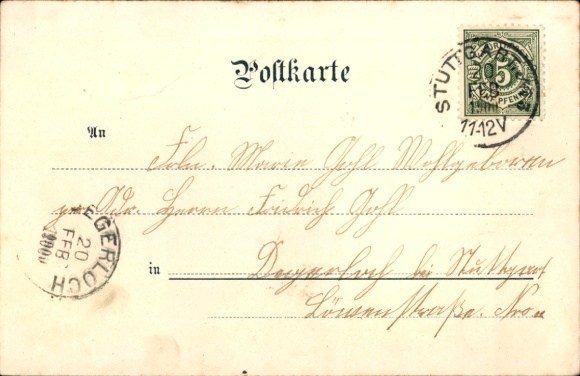 Postkarte
STUTTGART
20 FEB
1900
11-12V
5
PFENNIG
An
Frln. Marie Gohl Wohlgeboren
pr. Adr. Herrn Friedrich Gohl
in Degerloch bei Stuttgart
Löwenstraße. Nro.
DEGERLOCH
20
FEB
1900